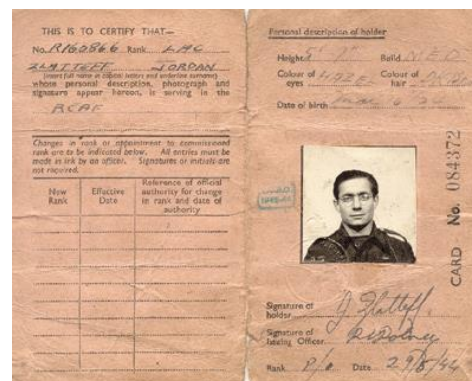 THIS IS TO CERTIFY THAT—
No. R160866 Rank LAC
ZLATTEFF JORDAN
(insert full name in capital letters and underline surname)
whose personal description, photograph and
signature appear hereon, is serving in the
RCAF
Changes in rank or appointment to commissioned
rank are to be indicated below. All entries must be
made in ink by an officer. Signatures or initials are
not required.
New Rank
Effective Date
Reference of official authority for change in rank and date of authority
Personal description of holder
Height 5' Build MED
Colour of eyes HAZEL Colour of hair
Date of birth
CARD No. 084372
Signature of holder J Zlatteff
Signature of Issuing Officer
Rank P/O Date 29/5/44